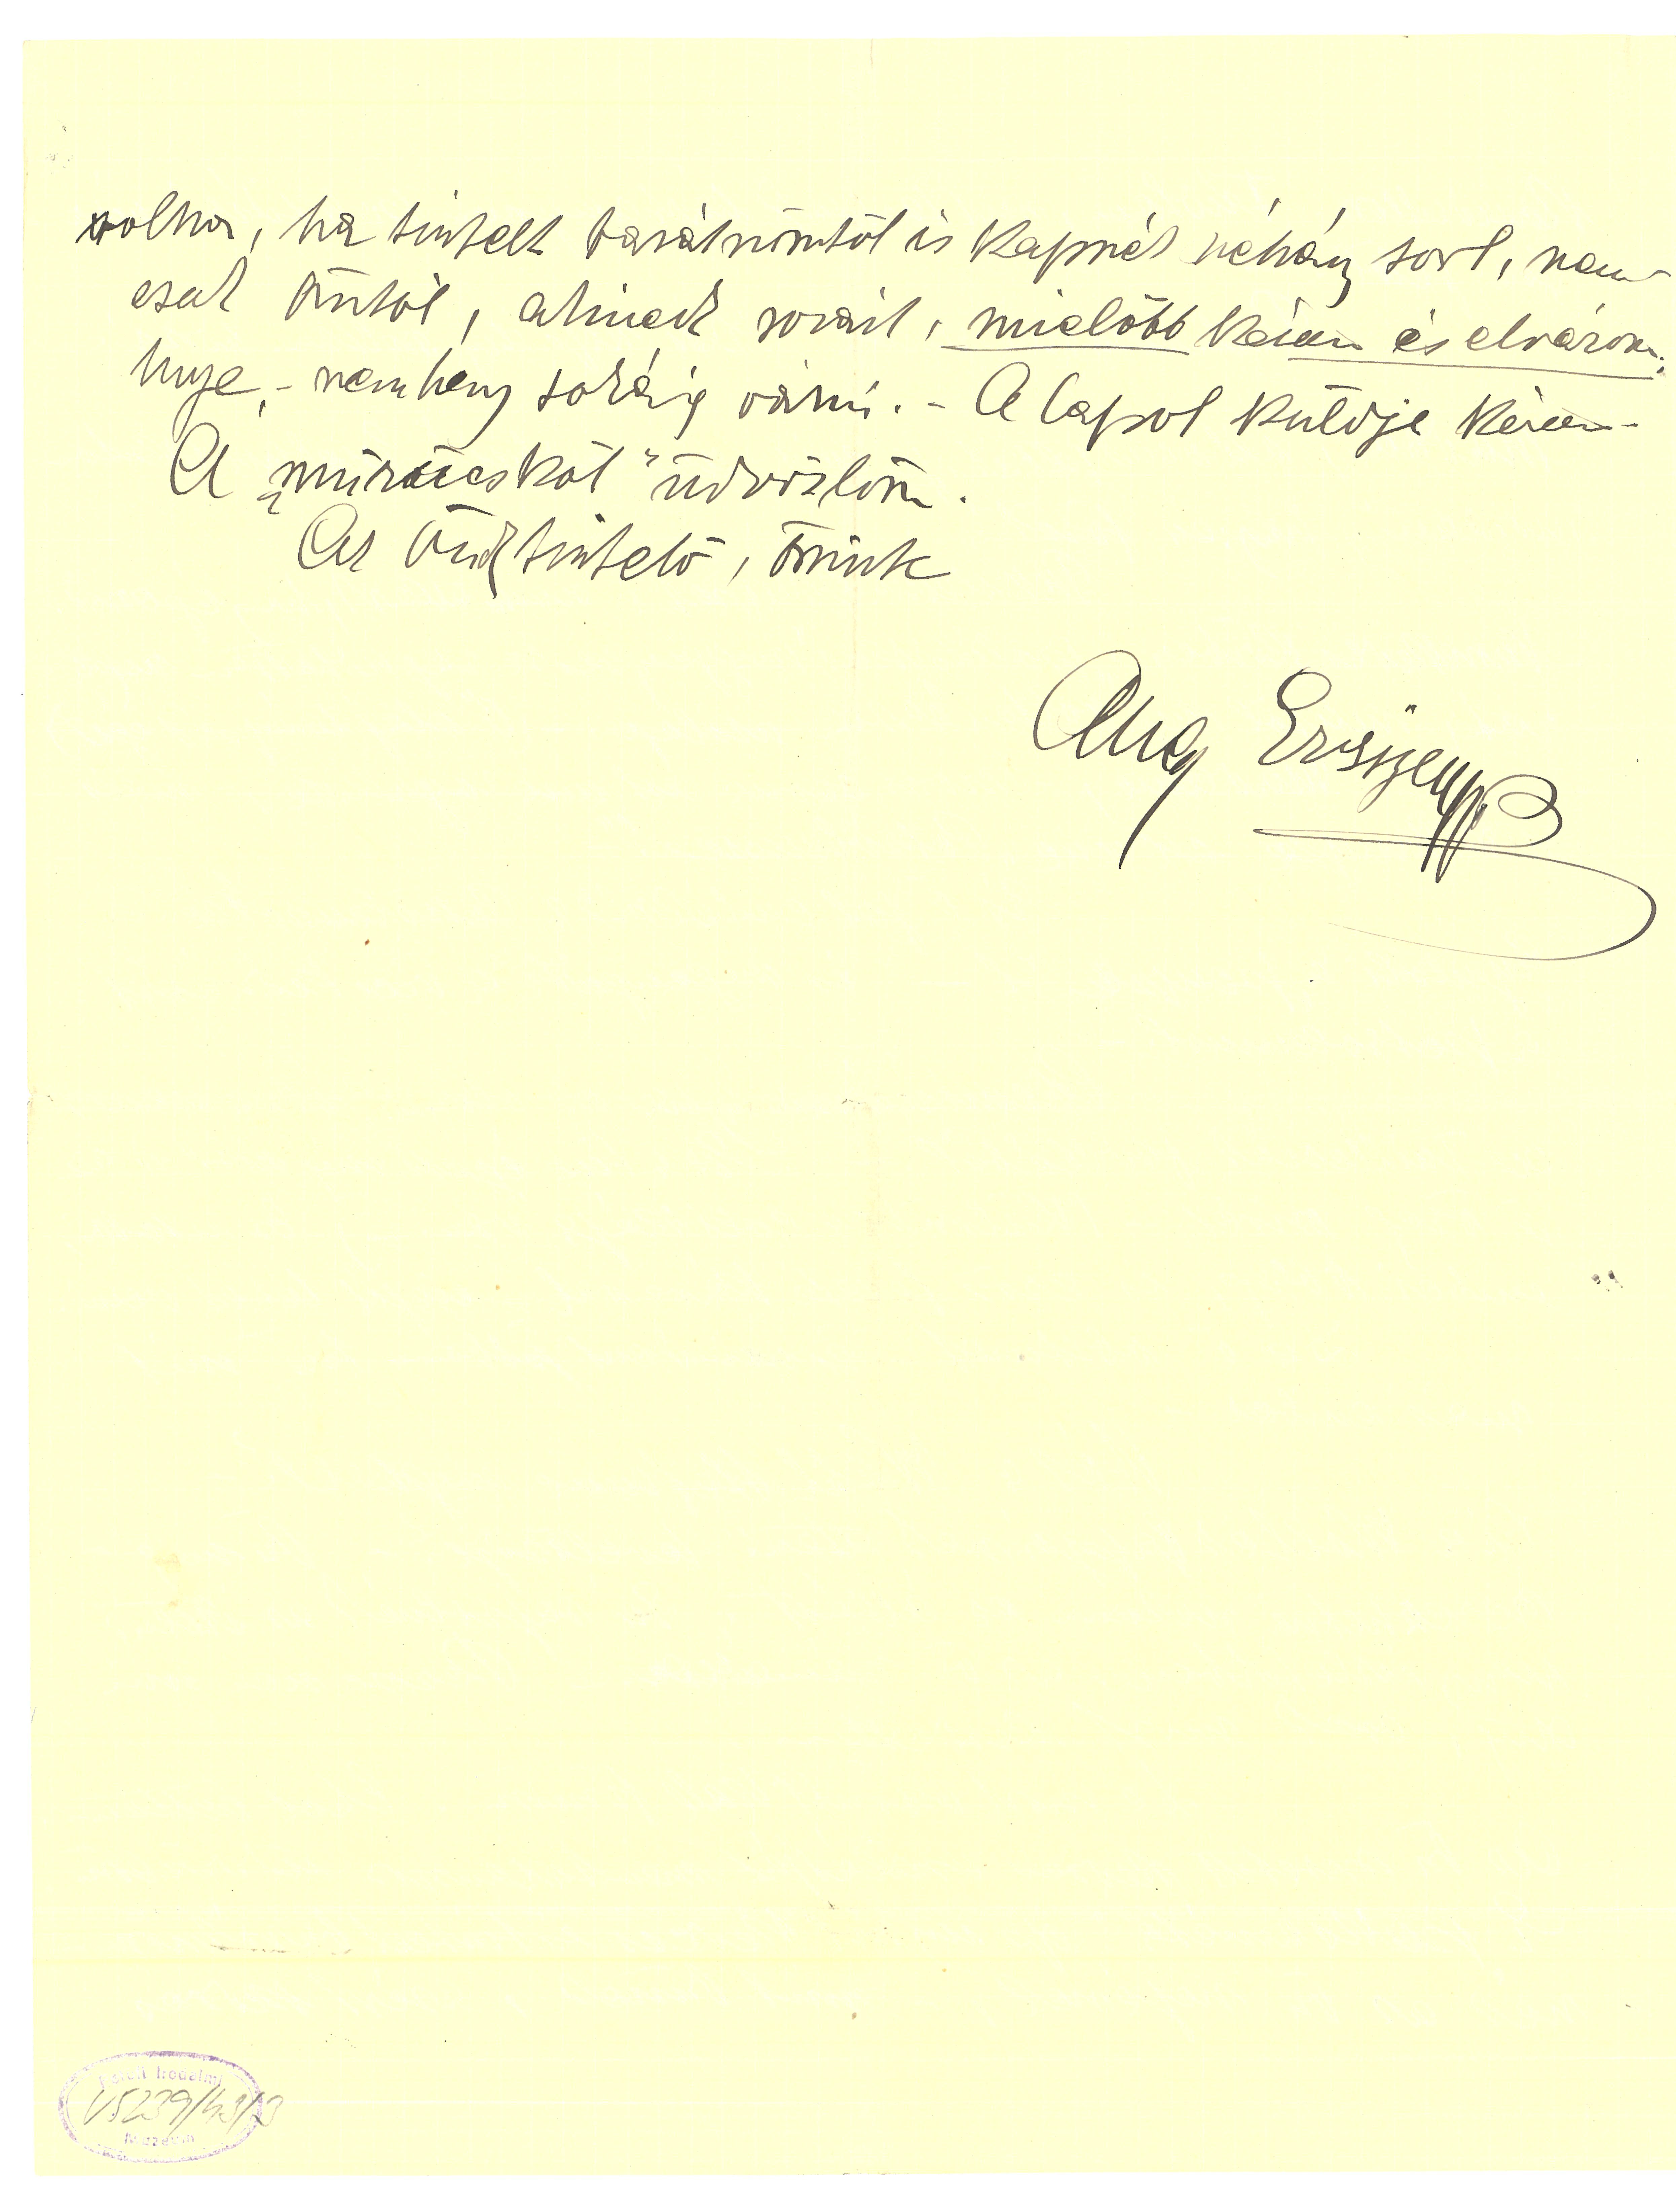 volna, ha tisztelt barátnőmtől is kapnék néhány sort, nem
csak Öntől, akinek sorait, mielőbb kérem és elvárom,
ugye, - nem hagy sokáig várni. - A lapot küldje kérem -
A „műrácskát" üdvözlöm.
Az Önök tisztelő, őszinte
Ady Erzsike
Petőfi Irodalmi
V5239/43/3
Múzeum